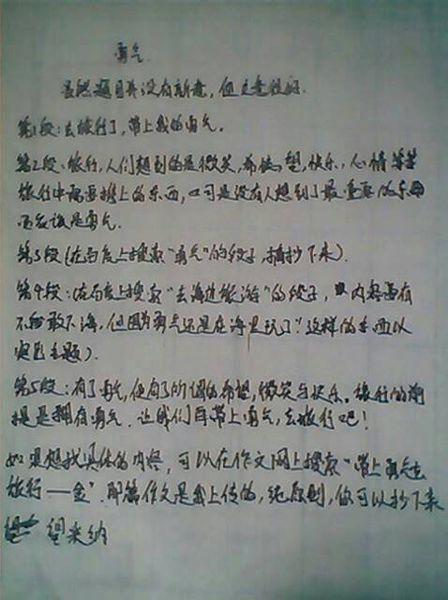 勇气
虽然题目并没有新意，但立意挺好.
第1段：去旅行了，带上我的勇气。
第2段：旅行，人们想到的是微笑，希望，快乐，心情等等
旅行中需要携上的东西，可是没有人想到了最重要的东西
而应该是勇气.
第3段（在百度上搜索“勇气”的段子，摘抄下来）.
第4段：（在百度上搜索“去海边旅游”的段子，内容要有
不敢下海，但因为勇气还是在海里玩了”这样的东西以
突出主题）.
第5段：有了勇气，便有了所谓的希望，微笑与快乐。旅行的前
提是拥有勇气．让我们再带上勇气，去旅行吧！
如果想找具体的内容，可以在作文网上搜索“带上勇气去
旅行——金”．那篇作文是我上传的，纯原创，你可以抄下来
望采纳